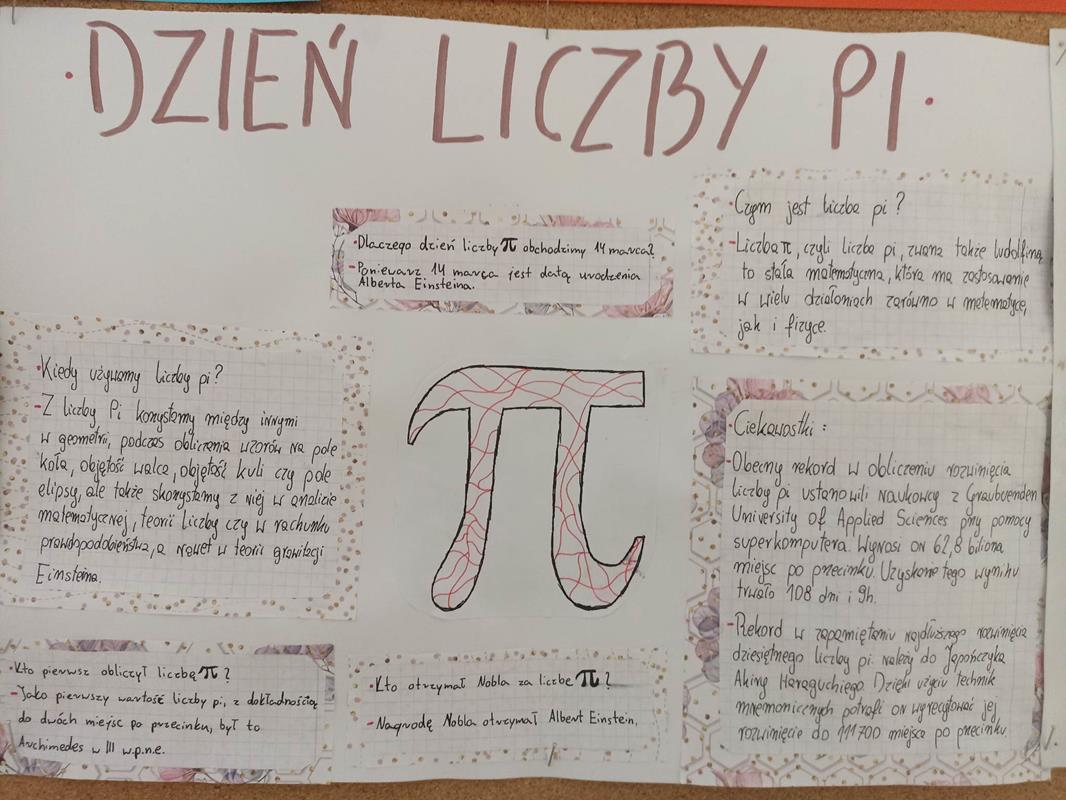 ·DZIEŃ LICZBY PI·
·Dlaczego dzień liczby π obchodzimy 14 marca?
-Ponieważ 14 marca jest datą urodzenia
Alberta Einsteina.
·Czym jest liczba pi?
-Liczba π, czyli liczba pi, zwana także ludolfiną,
to stała matematyczna, która ma zastosowanie
w wielu działaniach zarówno w matematyce,
jak i fizyce.
·Kiedy używamy liczby pi?
-Z liczby Pi korzystamy między innymi
w geometrii, podczas obliczenia wzorów na pole
koła, objętość walca, objętość kuli czy pole
elipsy, ale także skorzystamy z niej w analizie
matematycznej, teorii liczby czy w rachunku
prawdopodobieństwa, a nawet w teorii grawitacji
Einsteina.
π
·Ciekawostki:
-Obecny rekord w obliczeniu rozwinięcia
liczby pi ustanowili naukowcy z Graubuenden
University of Applied Sciences przy pomocy
superkomputera. Wynosi on 62,8 biliona
miejsc po przecinku. Uzyskanie tego wyniku
trwało 108 dni i 9h.
-Rekord w zapamiętaniu najdłuższego rozwinięcia
dziesiętnego liczby pi należy do Japończyka
Akiry Haraguchiego. Dzięki użyciu technik
mnemonicznych potrafi on wyrecytować jej
rozwinięcie do 111700 miejsca po przecinku
·Kto pierwszy obliczył liczbę π?
-Jako pierwszy wartość liczby pi, z dokładnością
do dwóch miejsc po przecinku, był to
Archimedes w III w.p.n.e.
·Kto otrzymał Nobla za liczbe π?
-Nagrodę Nobla otrzymał Albert Einstein.